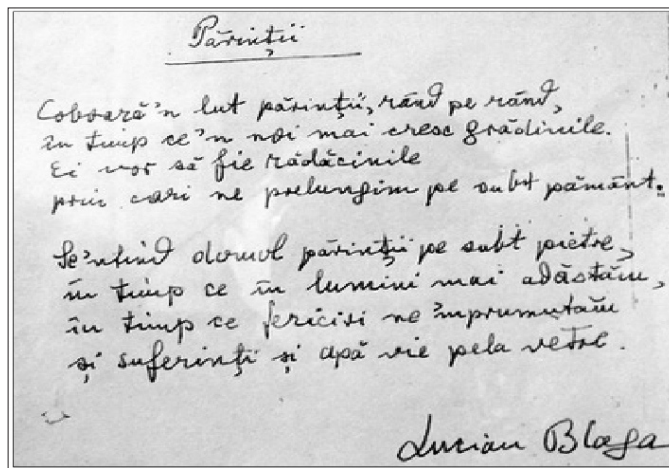 Părinții
Coboară'n lut părinții, rând pe rând,
în timp ce'n noi mai cresc grădinile.
Ei vor să fie rădăcinile
prin cari ne prelungim pe subt pământ.
Se'ntind domol părinții pe subt pietre,
în timp ce în lumini mai adăstăm,
în timp ce fericiri ne împrumutăm
și suferinți și apă vie pela vetre.
Lucian Blaga